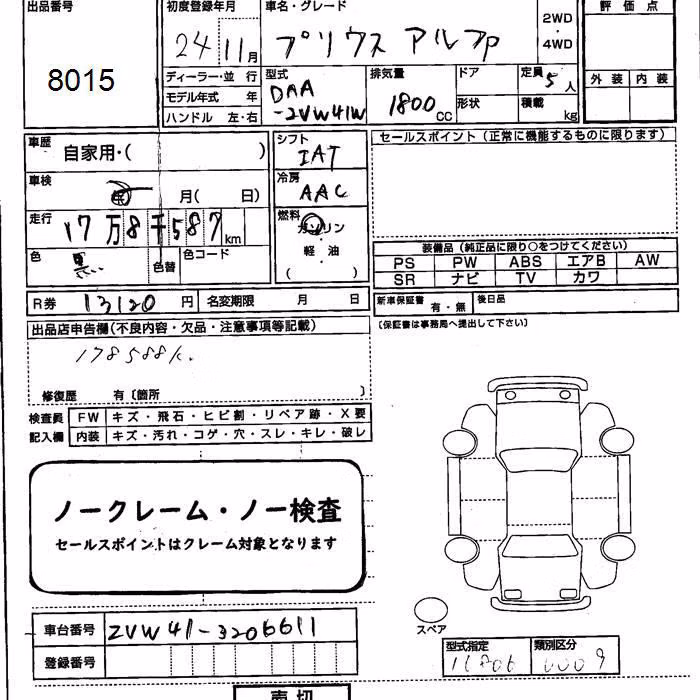 出品番号
8015
初度登録年月
24 11月
車名・グレード
プリウス アルファ
2WD
・
4WD
評価点
外装 内装
ディーラー・並行
モデル年式 年
ハンドル 左・右
型式
DAA
-ZVW41W
排気量
1800 CC
ドア
形状
定員 5人
積載 kg
車歴
自家用・( )
車検
月( 日)
走行
17万8千587km
色
黒
色替
色コード
シフト
IAT
冷房
AAC
燃料
ガソリン
軽・油
( )
セールスポイント(正常に機能するものに限ります)
装備品(純正品に限り○をつけてください)
PS PW ABS エアB AW
SR ナビ TV カワ
R券 13120円
名変期限 月 日
新車保証書 有・無
後日品
〔保証書は事務局へ提出して下さい〕
出品店申告欄(不良内容・欠品・注意事項等記載)
178588k.
修復歴 有〔箇所 〕
検査員
記入欄
FW キズ・飛石・ヒビ割・リペア跡・X要
内装 キズ・汚れ・コゲ・穴・スレ・キレ・破レ
ノークレーム・ノー検査
セールスポイントはクレーム対象となります
スペア
車台番号 ZVW41-3206611
登録番号
型式指定
類別区分
0009
売切